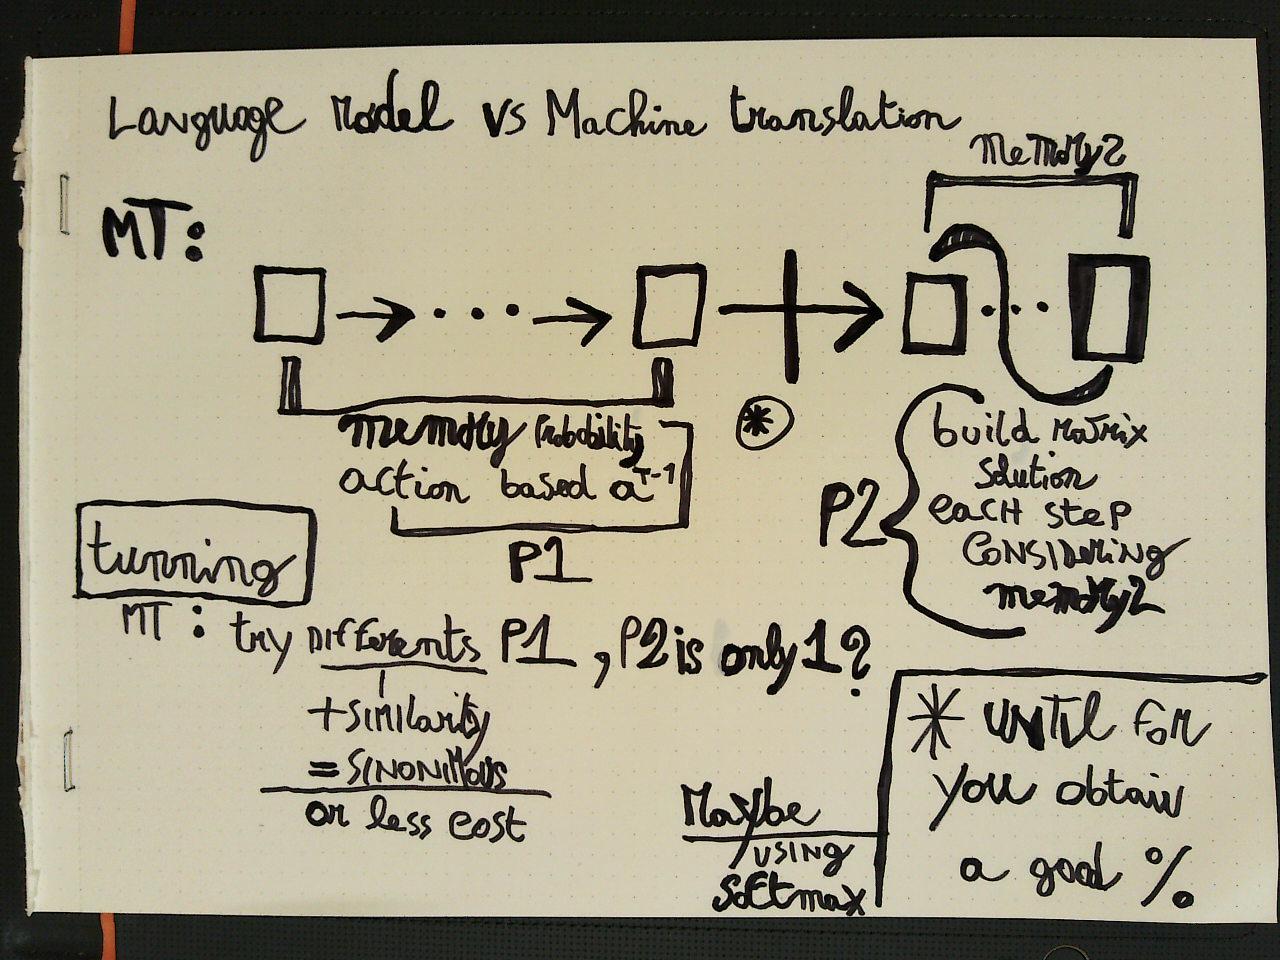 Language model vs Machine translation
memory2
MT:
*
memory probability
action based a^T-1
P1
P2
build matrix
solution
each step
considering
memory2
tunning
MT: try differents P1, P2 is only 1?
+similarity
= sinonimous
or less cost
Maybe
using
softmax
* until for
you obtain
a good %